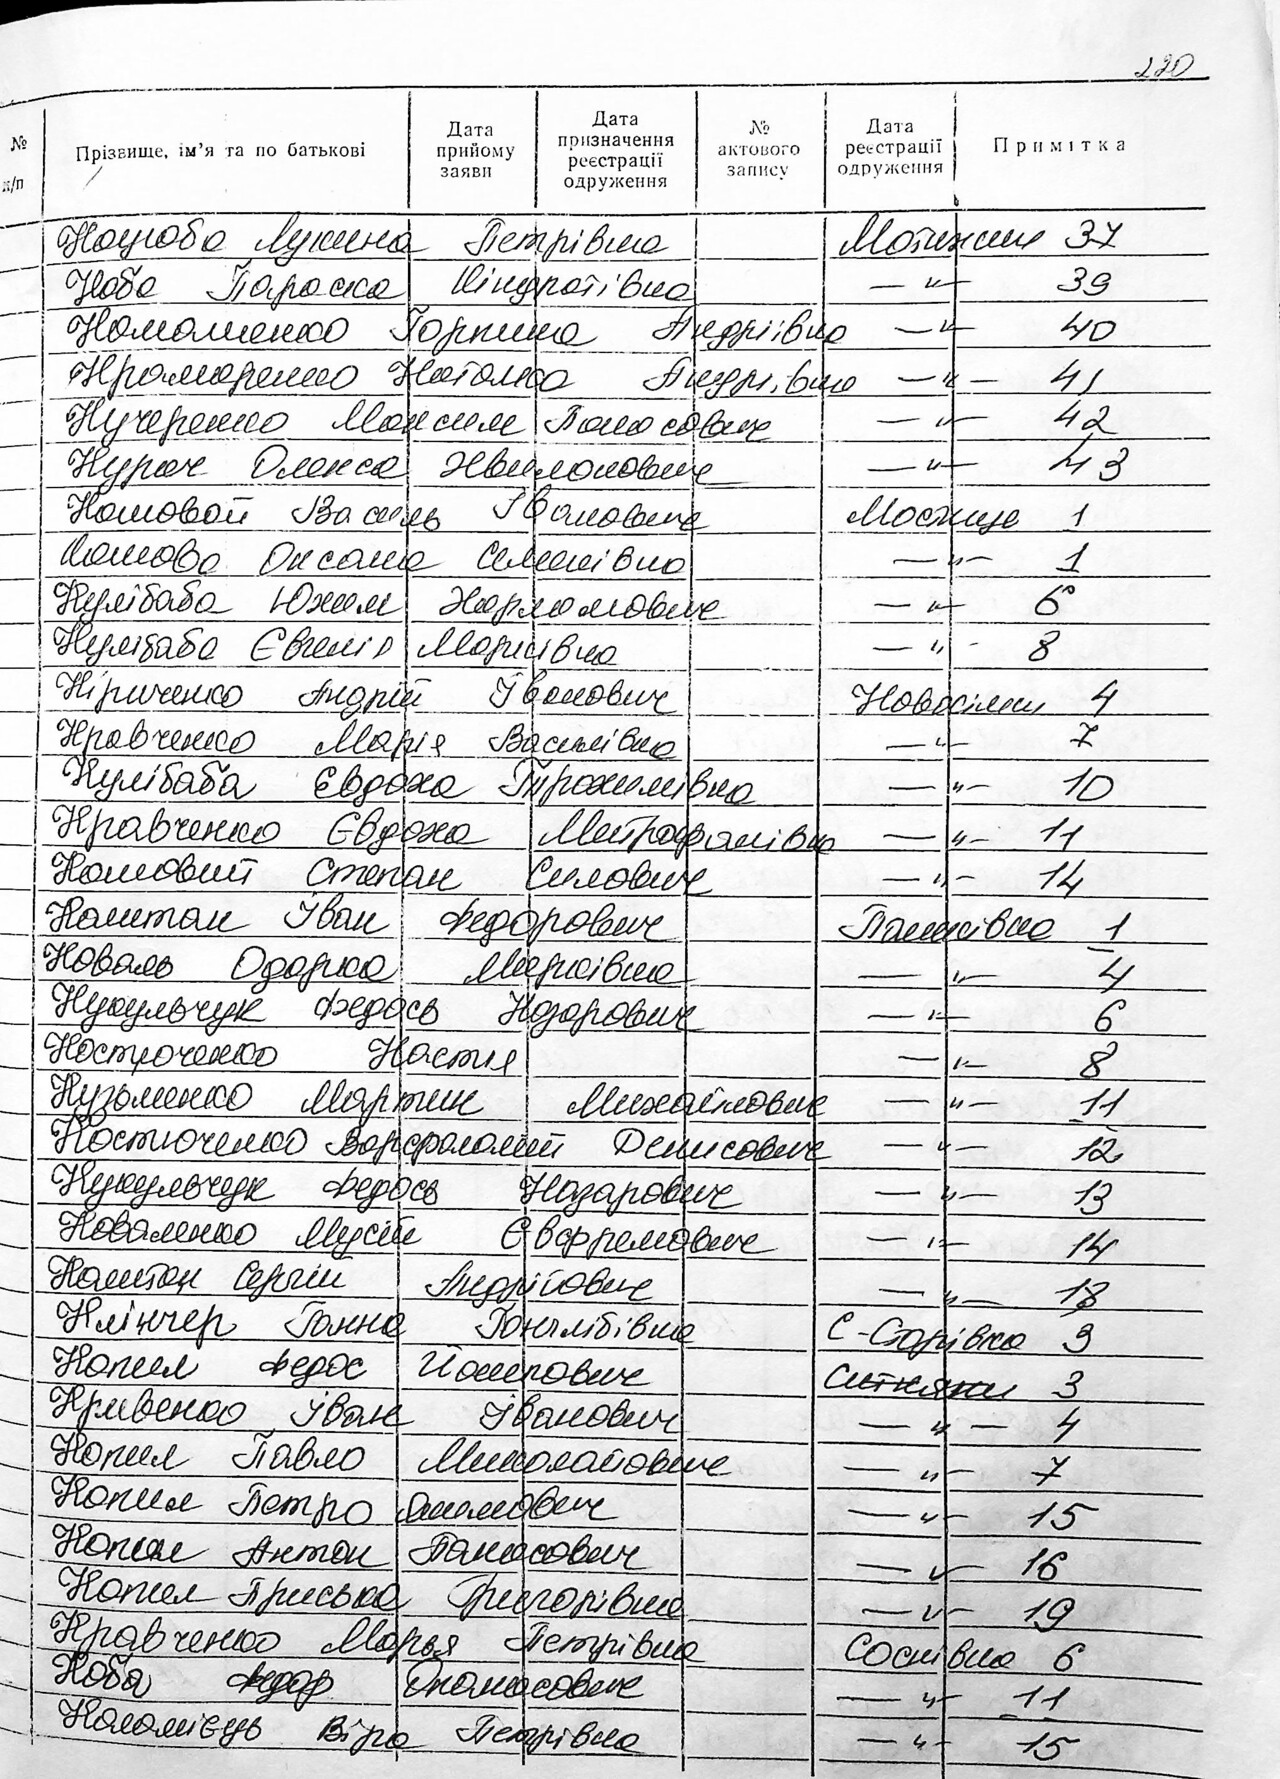 220
№ п/п Прізвище, ім'я та по батькові Дата прийому заяви Дата призначення реєстрації одруження № актового запису Дата реєстрації одруження Примітка
Лукина Петрівна Мотижин 37
Коба Параска Кіндратівна — " — 39
Комашенко Горпина Андріївна — " — 40
Крамаренко Наталка Андріївна — " — 41
Кучеренко Максим Панасович — " — 42
Курач Олекса — " — 43
Кошовой Василь Іванович Мостище 1
Кошова Оксана Семенівна — " — 1
Кулібаба Юхим Харламович — " — 6
Кулібаба Євгенія Марківна — " — 8
Кіриченко Андрій Іванович Новосілки 4
Кравченко Марія Василівна — " — 7
Кулібаба Євдоха Трохимівна — " — 10
Кравченко Євдоха Митрофанівна — " — 11
Кошовий Степан Силович — " — 14
Каштан Іван Федорович Пашківка 1
Коваль Одарка Марківна — " — 4
Кукульчук Федось Назарович — " — 6
Настя — " — 8
Кузьменко Мартин Михайлович — " — 11
Костюченко Варфоломій Денисович — " — 12
Кукульчук Федось Назарович — " — 13
Коваленко Мусій Євфремович — " — 14
Каштан Сергій Андрійович — " — 18
Клінчер Ганна Гонглібівна С-Старівка 3
Копил Федос Йосипович Ситняки 3
Кривенко Іван Іванович — " — 4
Копил Павло Миколайович — " — 7
Копил Петро Якимович — " — 15
Копил Антон Панасович — " — 16
Копил Приська Григорівна — " — 19
Кравченко Марья Петрівна Соснівка 6
Коба Федор Опанасович — " — 11
Коломієць Віра Петрівна — " — 15